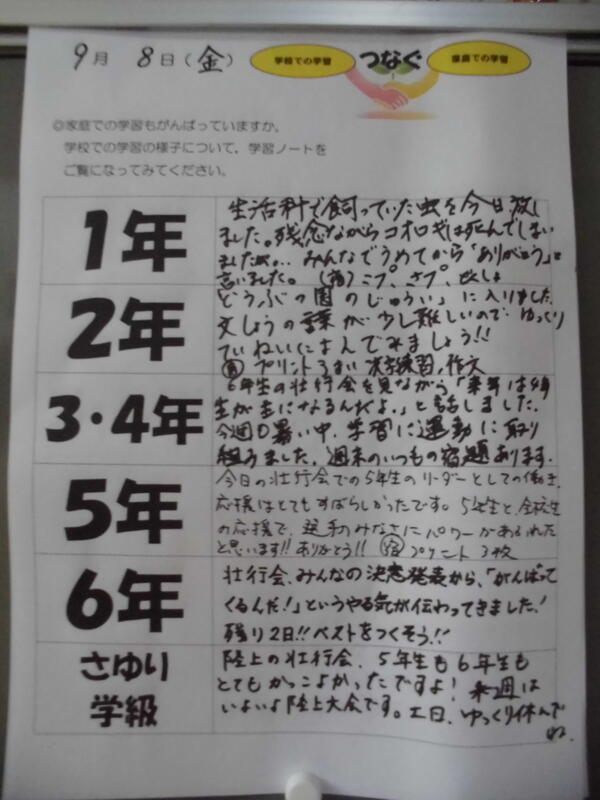 9月 8日(金)
学校での学習 つなぐ 家庭での学習
◎家庭での学習もがんばっていますか。
学校での学習の様子について、学習ノートを
ご覧になってみてください。
1年
生活科で飼っていた虫を今日放し
ました。残念ながらコオロギは死んでしまい
ましたが… みんなでうめてから「ありがとう」と
言いました。
2年
どうぶつ園のじゅうい」に入りました。
文しょうの言葉が少し難しいので、ゆっくり
ていねいによんでみましょう!!
プリント3まい 漢字練習、作文
3・4年
6年生の壮行会を見ながら「来年は4年
生が主になるんだよ。」と話しました。
今週の暑い中、学習に運動に取り
組みました。週末のいつもの宿題あります。
5年
今日の壮行会での5年生のリーダーとしての働き、
応援はとてもすばらしかったです。5年生と、全校生
の応援で、選手のみなさんにパワーがあふれた
と思います!!ありがとう!! 宿 プリント3枚
6年
壮行会、みんなの決意発表から、「がんばって
くるんだ!」というやる気が伝わってきました!
残り2日!!ベストをつくそう!!
さゆり
学級
陸上の壮行会、5年生も6年生も
とてもかっこよかったですよ! 来週は
いよいよ陸上大会です。土日、ゆっくり休んで
ね。